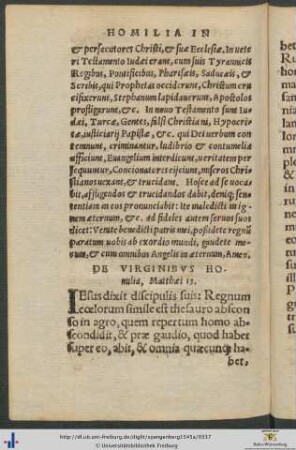 HOMILIA IN
& persecutores Christi, & suæ Ecclesiæ. In uete
ri Testamento Iudæi erant, cum suis Tyrannicis
Regibus, Pontificibus, Pharisæis, Saducæis, &
Scribis, qui Prophetas occiderunt, Christum cru
cifixerunt, Stephanum lapidauerunt, Apostolos
profligarunt, &c. In nouo Testamento sunt Iu-
dæi, Turcæ, Gentes, falsi Christiani, Hypocri-
tæ, iusticiarij Papistæ, &c. qui Dei uerbum con
temnunt, criminantur, ludibrio & contumelia
afficiunt, Euangelium interdicunt, ueritatem per
sequuntur, Concionatores eijciunt, miseros Chri
stianos uexant, & trucidant. Hosce ad se uoca
bit, affligendos & trucidandos dabit, deniq; sen
tentiam in eos pronunciabit: Ite maledicti in ig
nem æternum, &c. ad fideles autem seruos suos
dicet: Venite benedicti patris mei, possidete regnũ
paratum uobis ab exordio mundi, gaudete me-
cum, & cum omnibus Angelis in æternum, Amen.
DE VIRGINIBVS HO-
milia, Matthæi 13.
IEsus dixit discipulis suis: Regnum
cœlorum simile est thesauro abscon
so in agro, quem repertum homo ab-
scondidit, & præ gaudio, quod habet
super eo, abit, & omnia quæcunq; ha-
bet,
http://dl.ub.uni-freiburg.de/diglit/spangenberg1545a/0357
© Universitätsbibliothek Freiburg
Baden-Württemberg